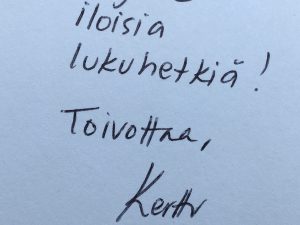 iloisia
lukuhetkiä!
Toivottaa,
Kerttu